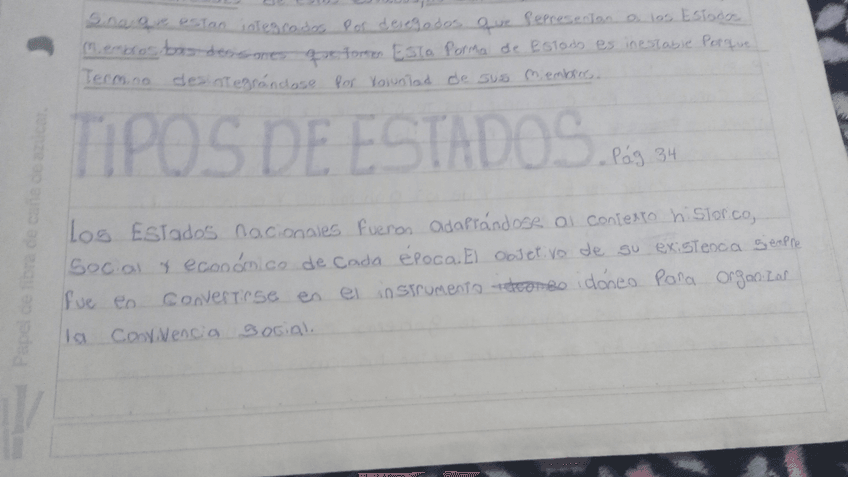 Sino que estan integrados Por delegados que Representan a los Estados
Miembros las decisiones que tomen Esta forma de Estado es inestable Porque
Termino desintegrándose Por Voluntad de sus Miembros.
TIPOS DE ESTADOS. Pág 34
Los Estados nacionales fueron adaptándose al contexto histórico,
Social y económico de cada época. El objetivo de su existencia siempre
fue en convertirse en el instrumento idoneo idóneo Para organizar
la Convivencia Social.
Papel de fibra de caña de azúcar.